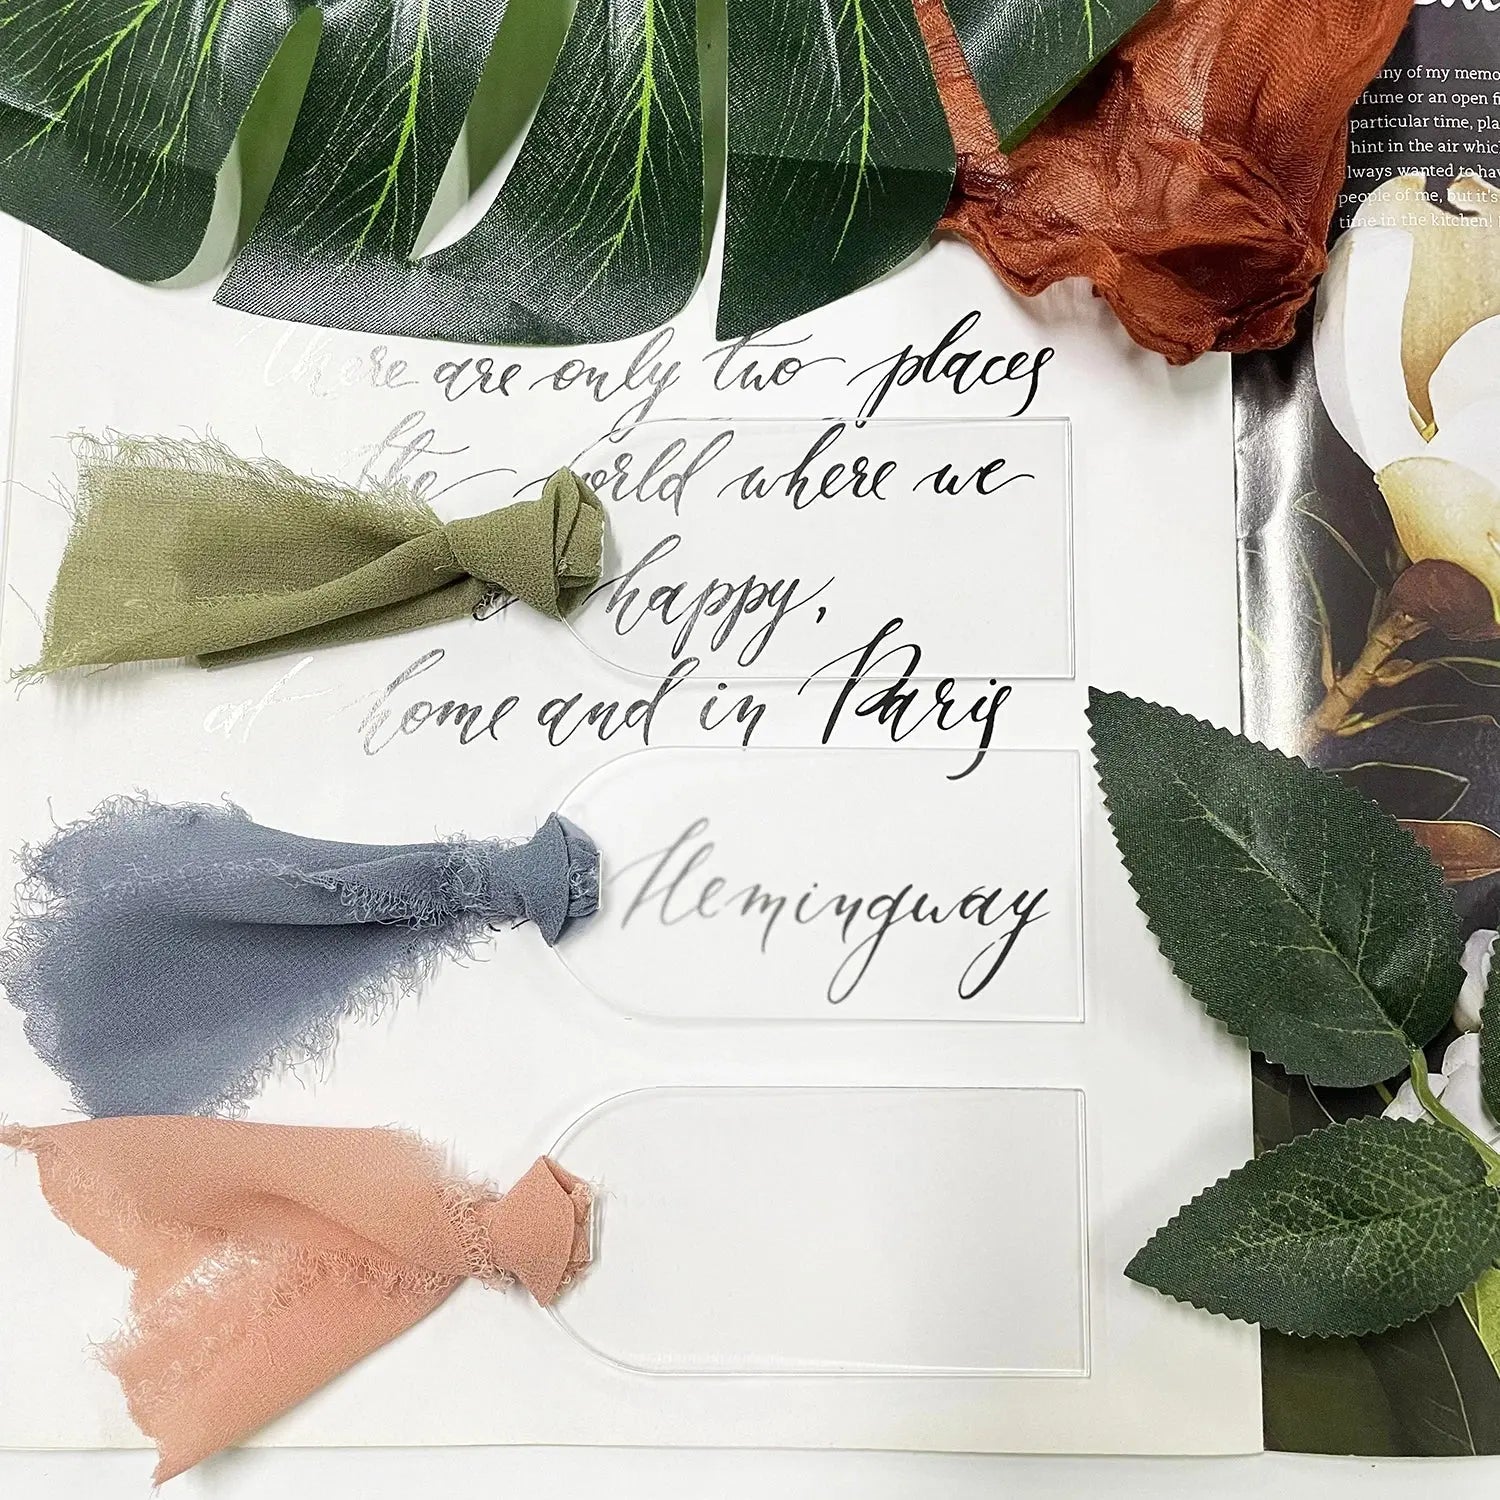 There are only two places
the world where we
happy,
at home and in Paris
Hemingway
any of my memo
rfume or an open fi
particular time, pla
hint in the air whic
lways wanted to hav
people of me, but it's
time in the kitchen!